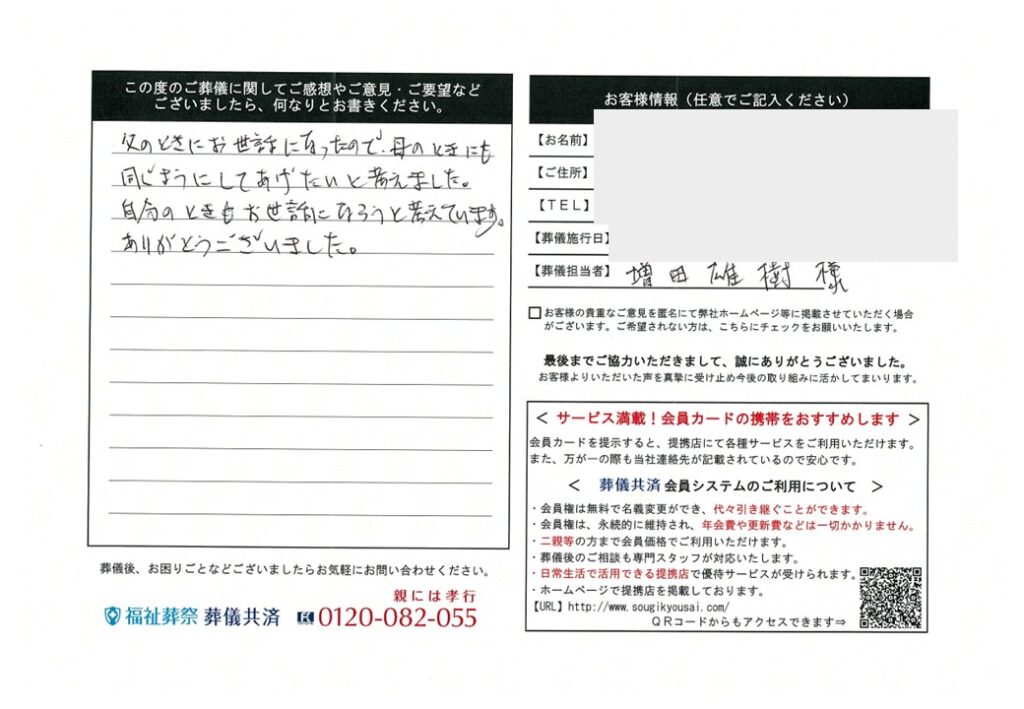 この度のご葬儀に関してご感想やご意見・ご要望など
ございましたら、何なりとお書きください。
父のときにお世話になったので、母のときにも
同じようにしてあげたいと考えました。
自分のときもお世話になろうと考えています。
ありがとうございました。
葬儀後、お困りごとなどございましたらお気軽にお問い合わせください。
親には孝行
福祉葬祭 葬儀共済 0120-082-055
お客様情報（任意でご記入ください）
【お名前】
【ご住所】
【ＴＥＬ】
【葬儀施行日】
【葬儀担当者】 増田雄樹様
お客様の貴重なご意見を匿名にて弊社ホームページ等に掲載させていただく場合
がございます。ご希望されない方は、こちらにチェックをお願いいたします。
最後までご協力いただきまして、誠にありがとうございました。
お客様よりいただいた声を真摯に受け止め今後の取り組みに活かしてまいります。
＜ サービス満載！会員カードの携帯をおすすめします ＞
会員カードを提示すると、提携店にて各種サービスをご利用いただけます。
また、万が一の際も当社連絡先が記載されているので安心です。
＜ 葬儀共済 会員システムのご利用について ＞
・会員権は無料で名義変更ができ、代々引き継ぐことができます。
・会員権は、永続的に維持され、年会費や更新費などは一切かかりません。
・二親等の方まで会員価格でご利用いただけます。
・葬儀後のご相談も専門スタッフが対応いたします。
・日常生活で活用できる提携店で優待サービスが受けられます。
・ホームページで提携店を掲載しております。
【URL】http://www.sougikyousai.com/
ＱＲコードからもアクセスできます⇒